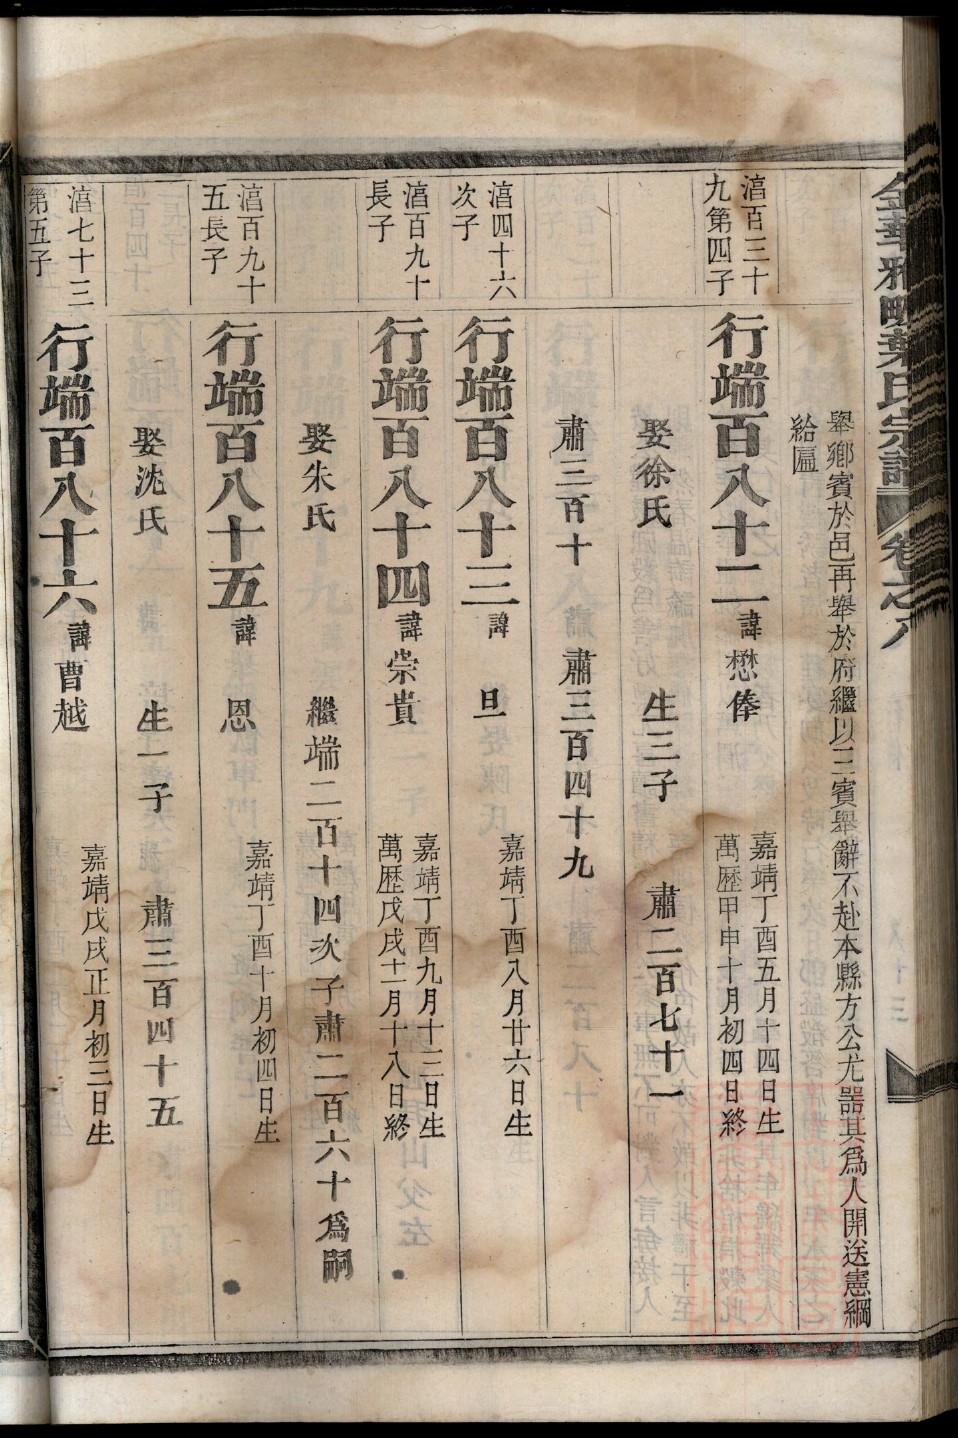 金華雅畈葉氏宗譜 卷之八
舉鄉賓於邑再舉於府繼以三賓舉辭不赴本縣方公尤器其爲人開送憲綱
給匾
湻百三十
九第四子
行端百八十二 諱懋俸
嘉靖丁酉五月十四日生
萬歷甲申十月初四日終
娶徐氏 生三子 肅二百七十一
肅三百十 肅三百四十九
湻四十六
次子
行端百八十三 諱旦
嘉靖丁酉八月廿六日生
湻百九十
長子
行端百八十四 諱崇貴
嘉靖丁酉九月十三日生
萬歷戊戌十一月十八日終
娶朱氏 繼端二百十四次子肅二百六十爲嗣
湻百九十
五長子
行端百八十五 諱恩
嘉靖丁酉十月初四日生
娶沈氏 生一子 肅三百四十五
湻七十三
第五子
行端百八十六 諱曹越
嘉靖戊戌正月初三日生